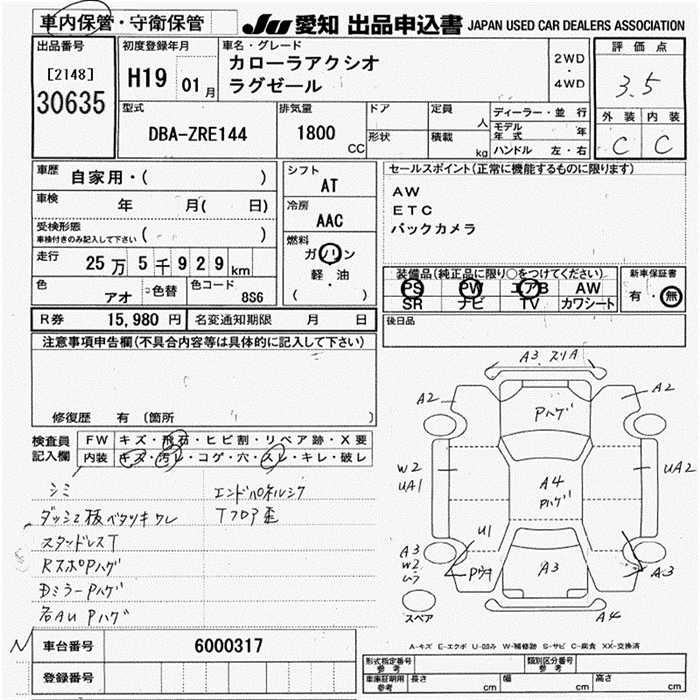 車内保管・守衛保管
JU 愛知 出品申込書 JAPAN USED CAR DEALERS ASSOCIATION
出品番号
[2148]
30635
初度登録年月
H19 01月
車名・グレード
カローラアクシオ
ラグゼール
2WD
・
4WD
評価点
3.5
外装 内装
C C
型式
DBA-ZRE144
排気量
1800
CC
ドア
形状
定員
人
積載
kg
ディーラー・並行
モデル年式 年
ハンドル 左・右
車歴
自家用・( )
車検
年 月( 日)
受検形態
車検付きのみ記入して下さい ( )
走行
25万5千929km
色
アオ
色替
色コード
8S6
シフト
AT
冷房
AAC
燃料
ガソリン
軽・油
( )
セールスポイント(正常に機能するものに限ります)
AW
ETC
バックカメラ
装備品(純正品に限り○をつけてください)
PS PW エアB AW
SR ナビ TV カワシート
新車保証書
有・無
後日品
R券 15,980 円 名変通知期限 月 日
注意事項申告欄(不具合内容等は具体的に記入して下さい)
修復歴 有 〔箇所
検査員
記入欄
FW キズ・飛石・ヒビ割・リペア跡・X要
内装 キズ・汚レ・コゲ・穴・スレ・キレ・破レ
シミ
ダッシュ板ベタツキワレ
スタッドレスT
RスポPハゲ
DミラーPハゲ
右AU Pハゲ
エンドパネルシワ
Tフロア歪
A3 スリA
A2
A2
Pハゲ
W2
UA1
A4
Pハゲ
UA2
U1
A3
W2
A3
A3
A4
スペア
車台番号 6000317
登録番号
A-キズ E-エクボ U-凹み W-補修跡 S-サビ C-腐食 XX-交換済
形式指定番号
参考
類別区分番号
参考
車庫証明用
参考
長さ cm 幅 cm 高さ cm